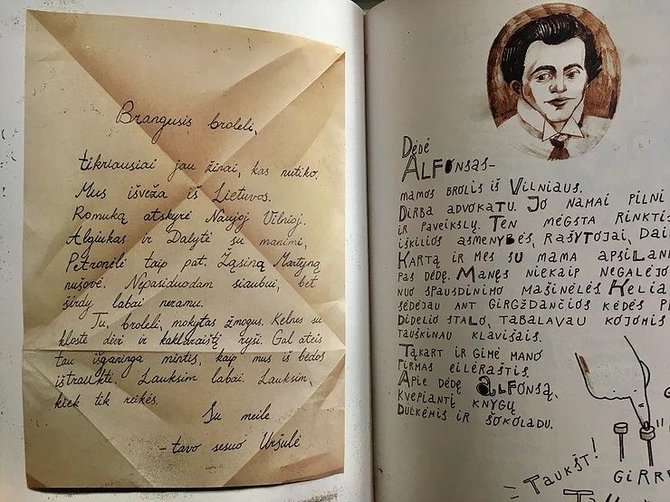 Brangusis broleli,
tikriausiai jau žinai, kas nutiko.
Mus išveža iš Lietuvos.
Romuką atskyrė Naujoj Vilnioj.
Algiukas ir Dalytė su manimi,
Petronėlė taip pat. Žąsiną Martyną
nušovė. Nepasiduodam siaubui, bet
širdy labai neramu.
Tu, broleli, mokytas žmogus. Kelnes su
kloste dėvi ir kaklaraištį ryši. Gal ateis
tau išganinga mintis, kaip mus iš bėdos
ištraukti. Lauksim labai. Lauksim,
kiek tik reikės.
Su meile
- tavo sesuo Uršulė
Dėdė
Alfonsas-
mamos brolis iš Vilniaus.
Dirba advokatu. Jo namai pilni
ir paveikslų. Ten mėgsta rinktis
iškilios asmenybės, rašytojai, dai
Kartą ir mes su mama apsilan
pas dėdę. Manęs niekaip negalėjo
nuo spausdinimo mašinėlės. Kelia
sėdėjau ant girgždančios kėdės pr
didelio stalo, tabalavau kojomis
taukšinau klavišais.
Tąkart ir gimė mano
pirmas eilėraštis.
Apie dėdę Alfonsą,
kvepiantį knygų
dulkėmis ir šokoladu.
- Taukšt!
Girrr